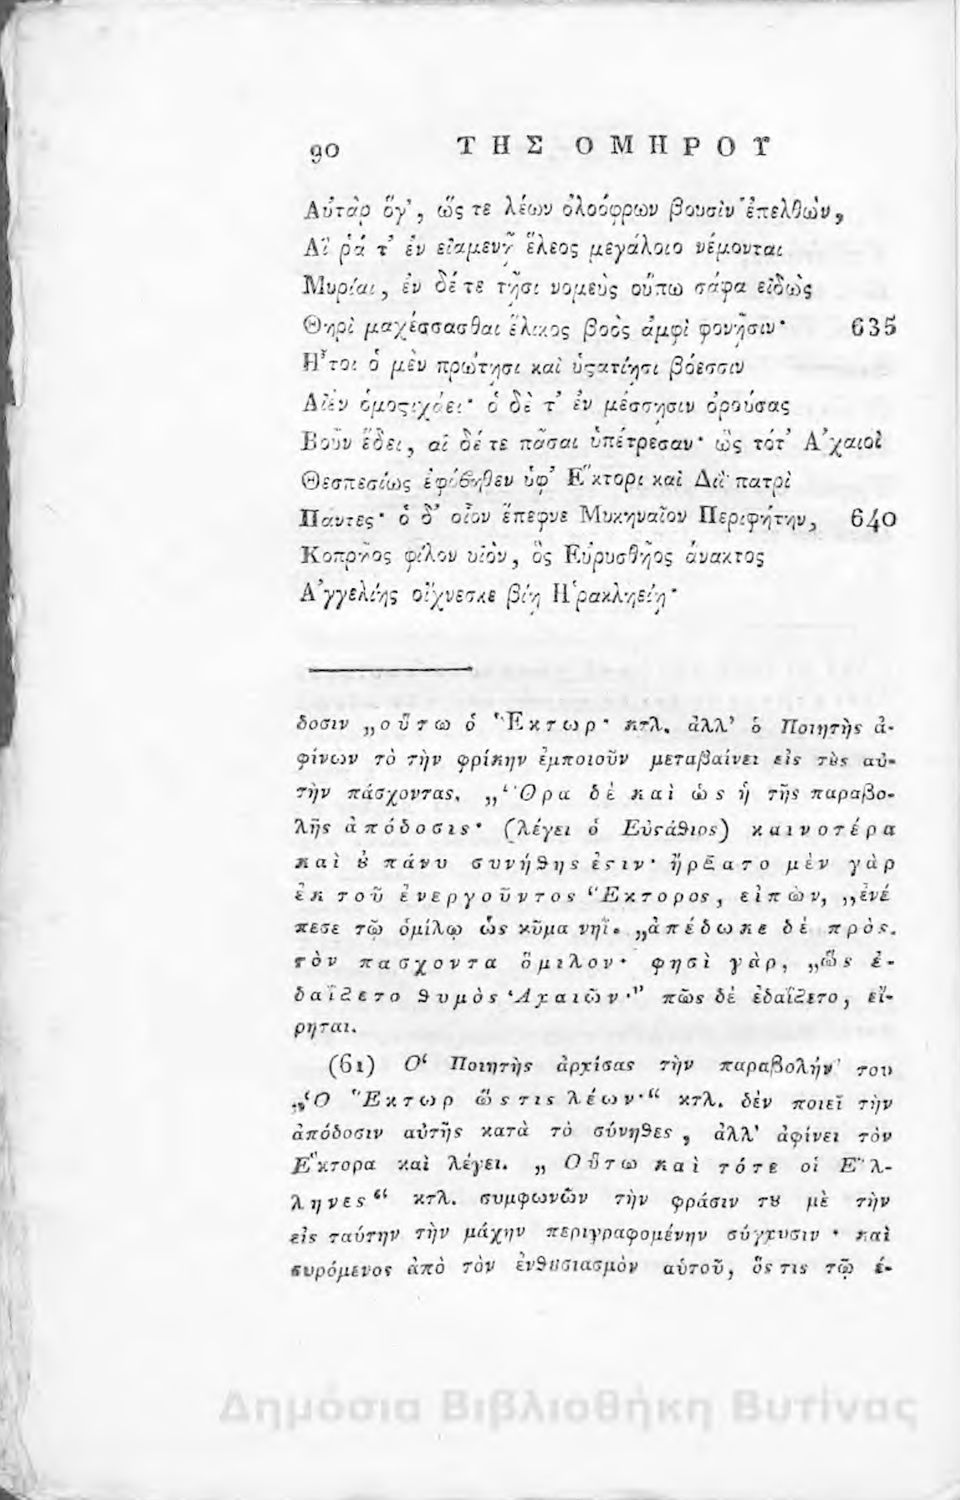 90 ΤΗΣ ΟΜΗΡΟΥ
Αὐτὰρ ὅγ', ὥς τε λέων ὀλοόφρων βουσὶν ἐπελθὼν,
Αἵ ῥά τ' ἐν εἱαμενῇ ἕλεος μεγάλοιο νέμονται
Μυρίαι, ἐν δέ τε τῇσι νομεὺς οὔπω σάφα εἰδὼς
Θηρὶ μαχέσσασθαι ἕλικος βοὸς ἀμφὶ φονῇσιν· 635
Η῎τοι ὁ μὲν πρώτῃσι καὶ ὑςατίῃσι βόεσσιν
Αἰὲν ὁμοςιχάει· ὁ δέ τ' ἐν μέσσῃσιν ὀρούσας
Βοῦν ἔδει, αἱ δέ τε πᾶσαι ὑπέτρεσαν· ὣς τότ' Α᾿χαιοὶ
Θεσπεσίως ἐφόβηθεν ὑφ' Ε῞κτορι καὶ Διῒ πατρὶ
Πάντες· ὁ δ' οἶον ἔπεφνε Μυκηναῖον Περιφήτην, 640
Κοπρῆος φίλον υἱὸν, ὃς Εὐρυσθῆος ἄνακτος
Α᾿γγελίης οἴχνεσκε βίῃ Η῾ρακληείῃ·
δοσιν „οὕτω ὁ Ἕκτωρ· κτλ. ἀλλ' ὁ Ποιητὴς ἀ-
φίνων τὸ τὴν φρίκην ἐμποιοῦν μεταβαίνει εἰς τȣ̀ς αὐ-
τὴν πάσχοντας. „Ὅρα δὲ καὶ ὡς ἡ τῆς παραβο-
λῆς ἀπόδοσις· (λέγει ὁ Εὐςάθιος) καινοτέρα
καὶ ȣ̓ πάνυ συνήθης ἐςιν· ἤρξατο μὲν γὰρ
ἐκ τοῦ ἐνεργοῦντος Ἕκτορος, εἰπὼν, „ἐνέ
πεσε τῷ ὁμίλῳ ὡς κῦμα νηΐ. „ἀπέδωκε δὲ πρὸς.
τὸν πασχοντα ὅμιλον· φησὶ γὰρ, „ὣς ἐ-
δαΐζετο θυμὸς Ἀχαιῶν·" πῶς δὲ ἐδαΐζετο, εἴ-
ρηται.
(61) Ο῾ Ποιητὴς ἀρχίσας τὴν παραβολήν του
„Ὁ Ἕκτωρ ὥς τις λέων·" κτλ. δὲν ποιεῖ τὴν
ἀπόδοσιν αὐτῆς κατὰ τὸ σύνηθες, ἀλλ' ἀφίνει τὸν
Ε῞κτορα καὶ λέγει. „Οὕτω καὶ τότε οἱ Ε῞λ-
ληνες" κτλ. συμφωνῶν τὴν φράσιν τȣ μὲ τὴν
εἰς ταύτην τὴν μάχην περιγραφομένην σύγχυσιν· καὶ
συρόμενος ἀπὸ τὸν ἐνθȣσιασμὸν αὑτοῦ, ὅς τις τῷ ἐ-
Δημόσια Βιβλιοθήκη Βυτίνας